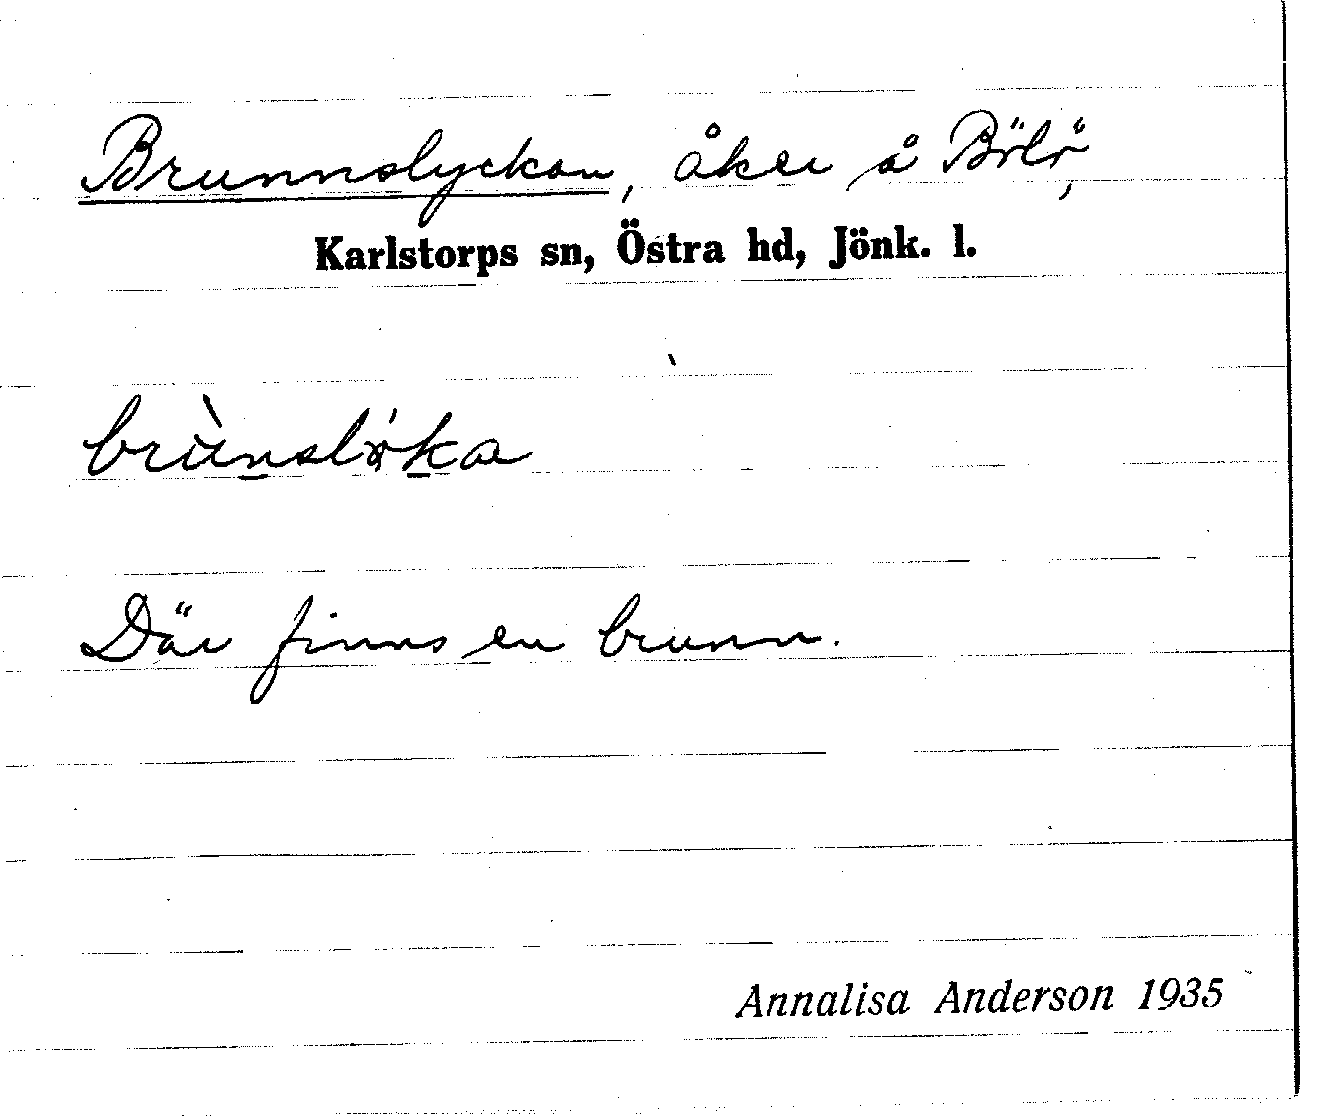 Brunnslyckan, åker å Bölö,
Karlstorps sn, Östra hd, Jönk. l.
brùnslöka
Där finns en brunn.
Annalisa Anderson 1935